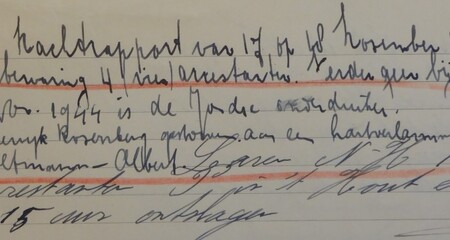 Nachtrapport van 17 op 18 November
bewaring 4 /vier/ arrestanten. Verder geen bij
Nov. 1944 is de Joodse onderduiker.
Rosenberg gestorven aan een hartverlamm
ltmann - Albert. N. H
restanten in 't Hout e
15 uur ontslagen